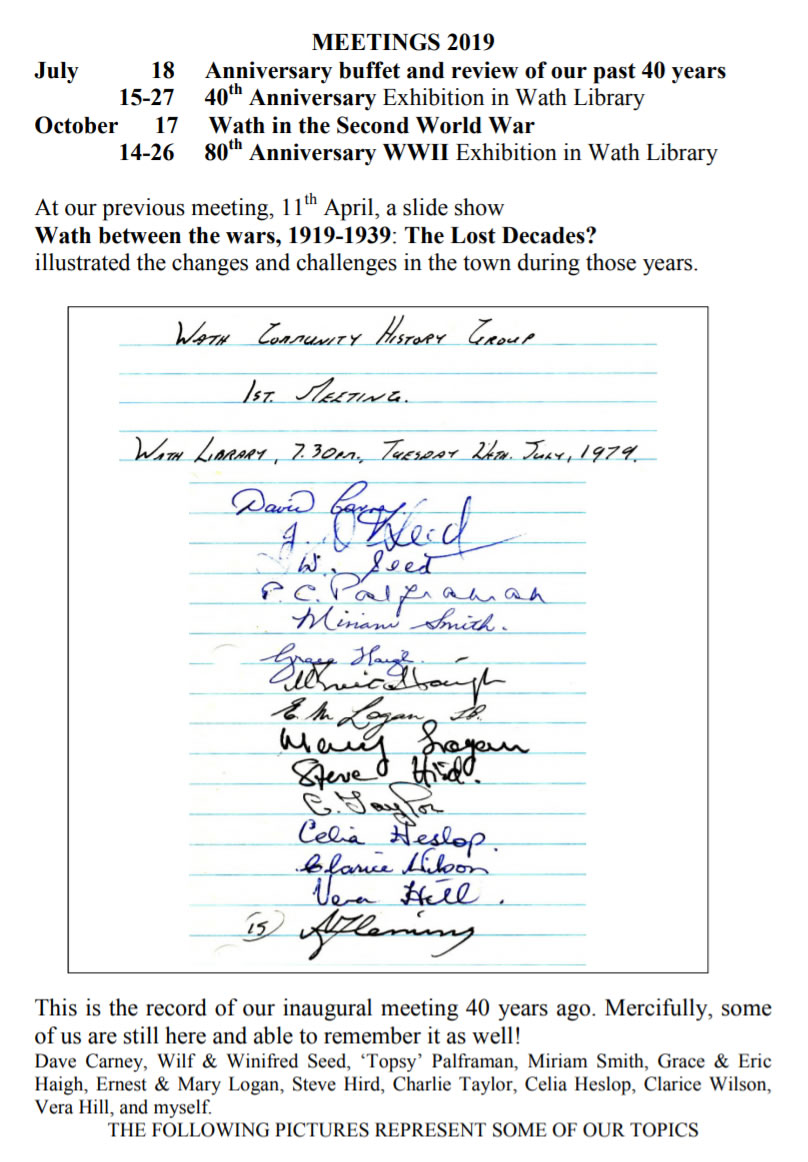 MEETINGS 2019
July 18 Anniversary buffet and review of our past 40 years
15-27 40th Anniversary Exhibition in Wath Library
October 17 Wath in the Second World War
14-26 80th Anniversary WWII Exhibition in Wath Library
At our previous meeting, 11th April, a slide show
Wath between the wars, 1919-1939: The Lost Decades?
illustrated the changes and challenges in the town during those years.
WATH COMMUNITY HISTORY GROUP
1ST. MEETING.
WATH LIBRARY, 7.30PM, TUESDAY 24TH. JULY, 1979.
David Carney
Seed
W. Seed
P. C. Palframan
Miriam Smith.
Grace Haigh.
Haigh
E. M. Logan
Mary Logan
Steve Hird.
C. Taylor
Celia Heslop.
Clarice Wilson
Vera Hill.
(15) A Fleming
This is the record of our inaugural meeting 40 years ago. Mercifully, some
of us are still here and able to remember it as well!
Dave Carney, Wilf & Winifred Seed, ‘Topsy’ Palframan, Miriam Smith, Grace & Eric
Haigh, Ernest & Mary Logan, Steve Hird, Charlie Taylor, Celia Heslop, Clarice Wilson,
Vera Hill, and myself.
THE FOLLOWING PICTURES REPRESENT SOME OF OUR TOPICS